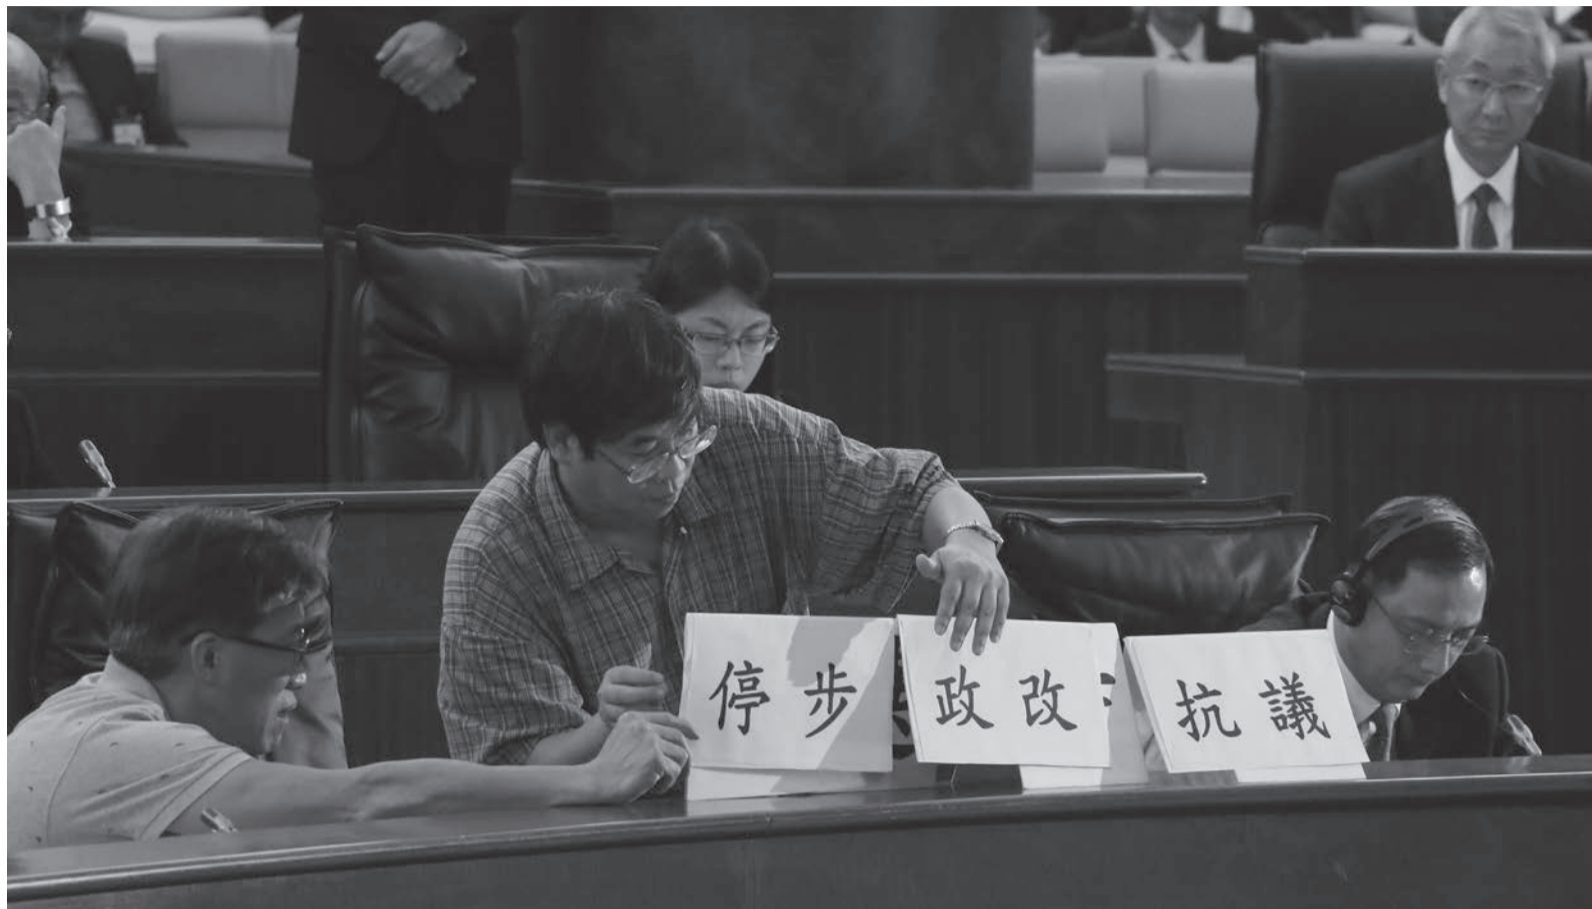 停步 政改 抗議